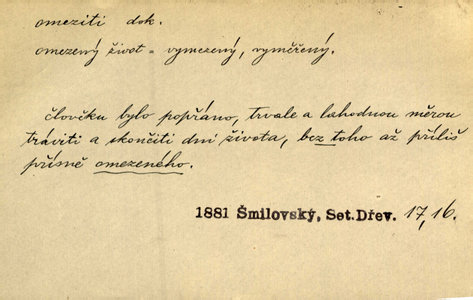 omeziti dok.
omezený život = vymezený, vyměřený.
člověku bylo popřáno, trvale a lahodnou měrou
tráviti a skončiti dní života, bez toho až příliš
přísně omezeného.
1881 Šmilovský, Set. Dřev. 17, 16.